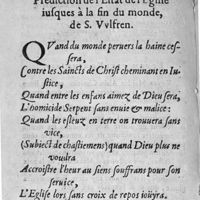 Prediction de l'Estat de l'Eglise
iusques à la fin du monde,
de S. Vvlfren.
QVand du monde peruers la haine ces-
sera,
Contre les Saincts de Christ cheminant en Iu-
stice,
Quand entre les enfans aimez de Dieu sera,
L'homicide Serpent sans enuie & malice:
Quand les esleuz en terre on trouuera sans
vice,
(Subiect de chastiemens) quand Dieu plus ne
voudra
Accroistre l'heur au siens souffrans pour son
seruice,
L'Eglise lors sans croix de repos ioüyra.